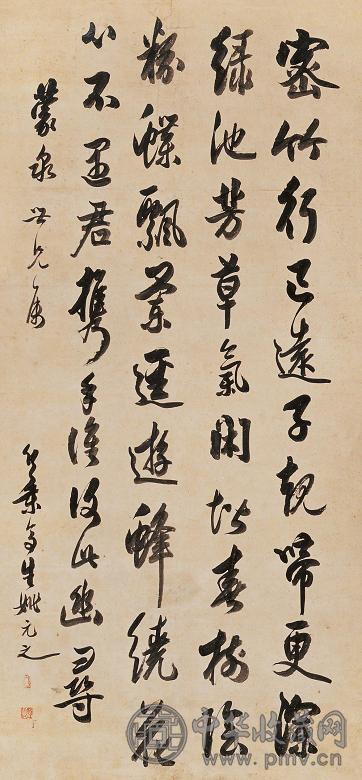 密竹行已遠子規啼更深
綠池芳草氣閑齋春樹陰
粉蝶飄蘭逕遊蜂繞花
心不遇君携手誰復此幽尋
蒙泉世兄屬
竹葉亭生姚元之
中华收藏网
www.pmv.cn